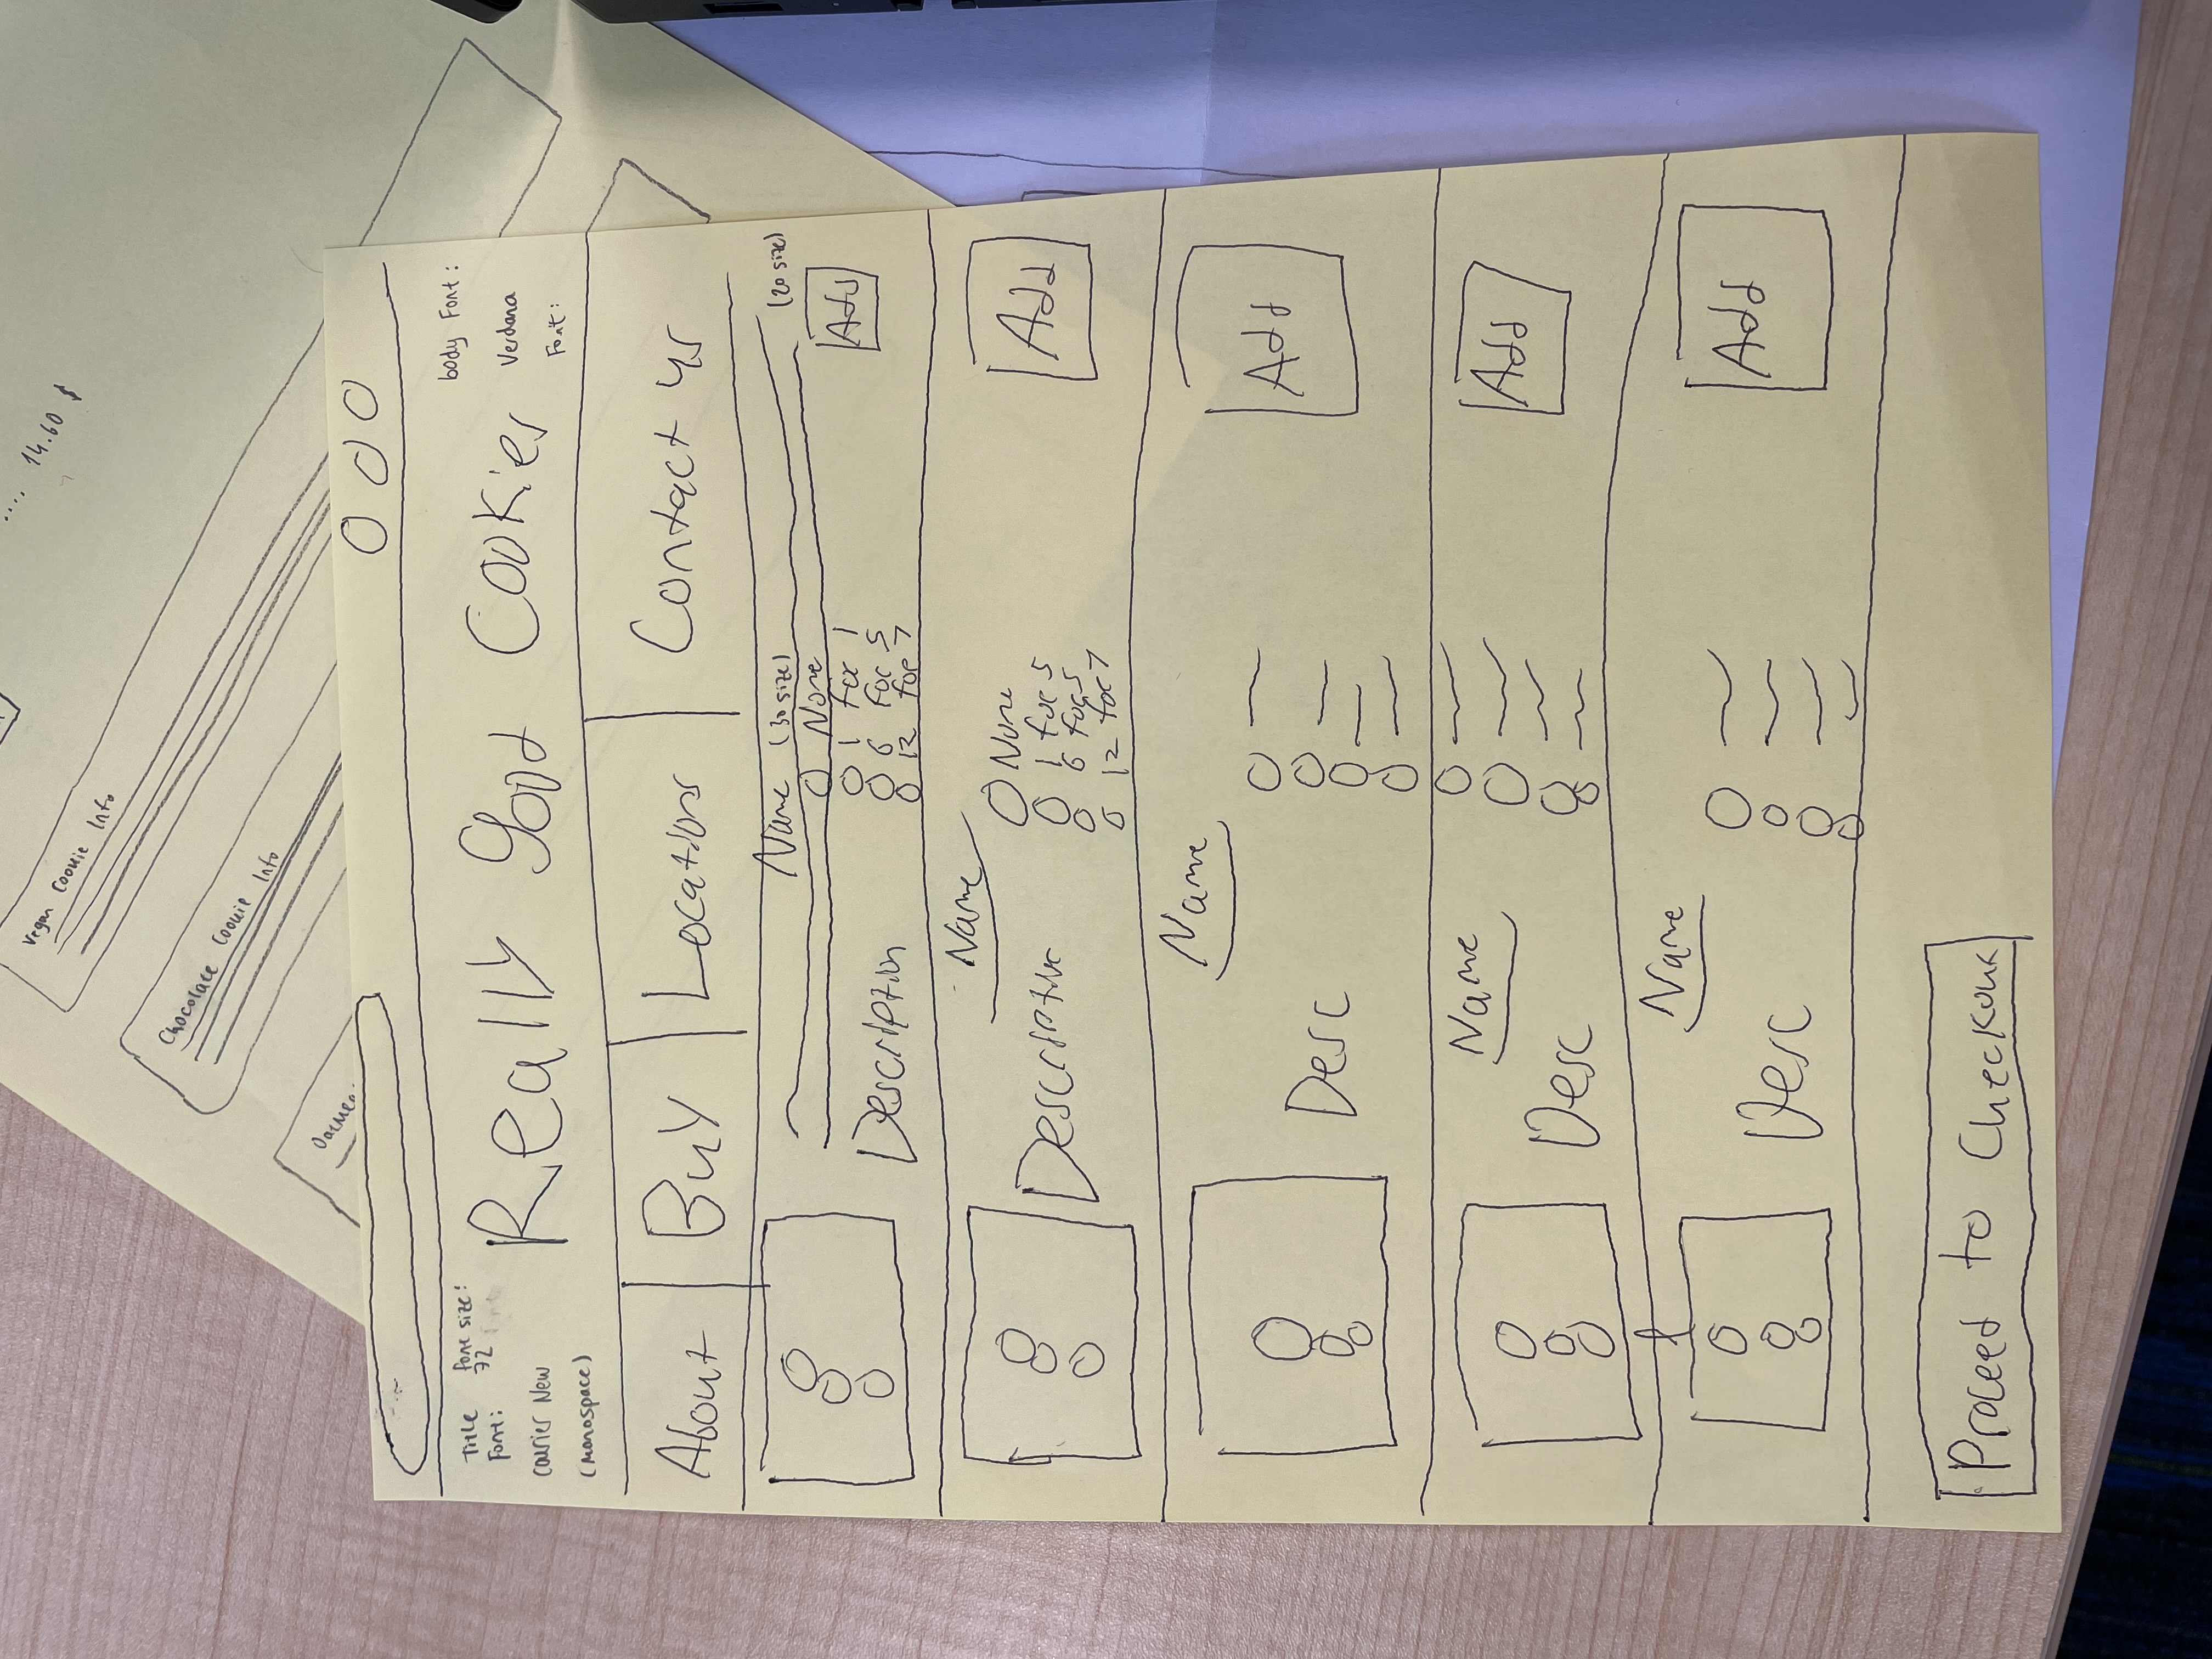 14.60 $
Vegan Cookie Info
Chocolate Cookie Info
Title font size:
Font: 72
Courier New
(Monospace)
Really Good Cookies
body Font:
Verdana
Font:
About Buy Locations Contact us
Name (30 size) (20 size)
None
1 for 1
6 for 5
12 for 7
Description
Add
Name
None
Description
1 for 5
6 for 5
12 for 7
Add
Name
Desc
Add
Name
Desc
Add
Name
Desc
Add
Proceed to Checkout